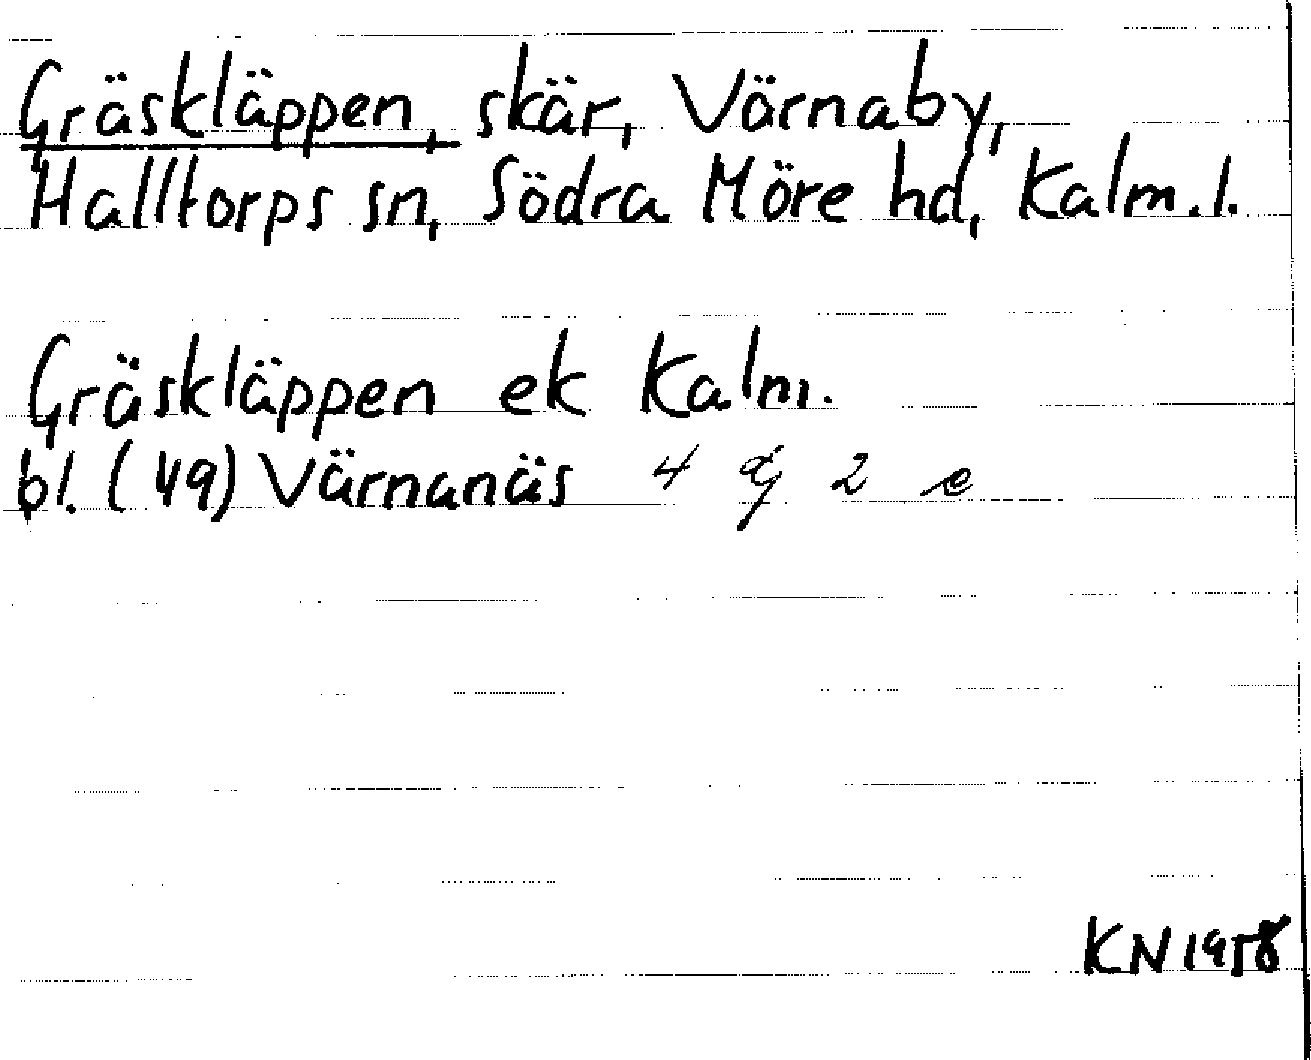 Gräskläppen, skär, Värnaby,
Halltorps sn, Södra Möre hd, Kalm. l.
Gräskläppen ek Kalm.
bl. (49) Värnanäs 4 g 2 e
KN 1958